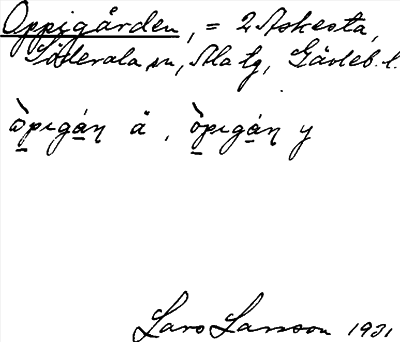 Oppigården, = 2 Askesta,
Söderala sn, Ala tg, Gävleb. l.
ä , y
Lars Larsson 1931